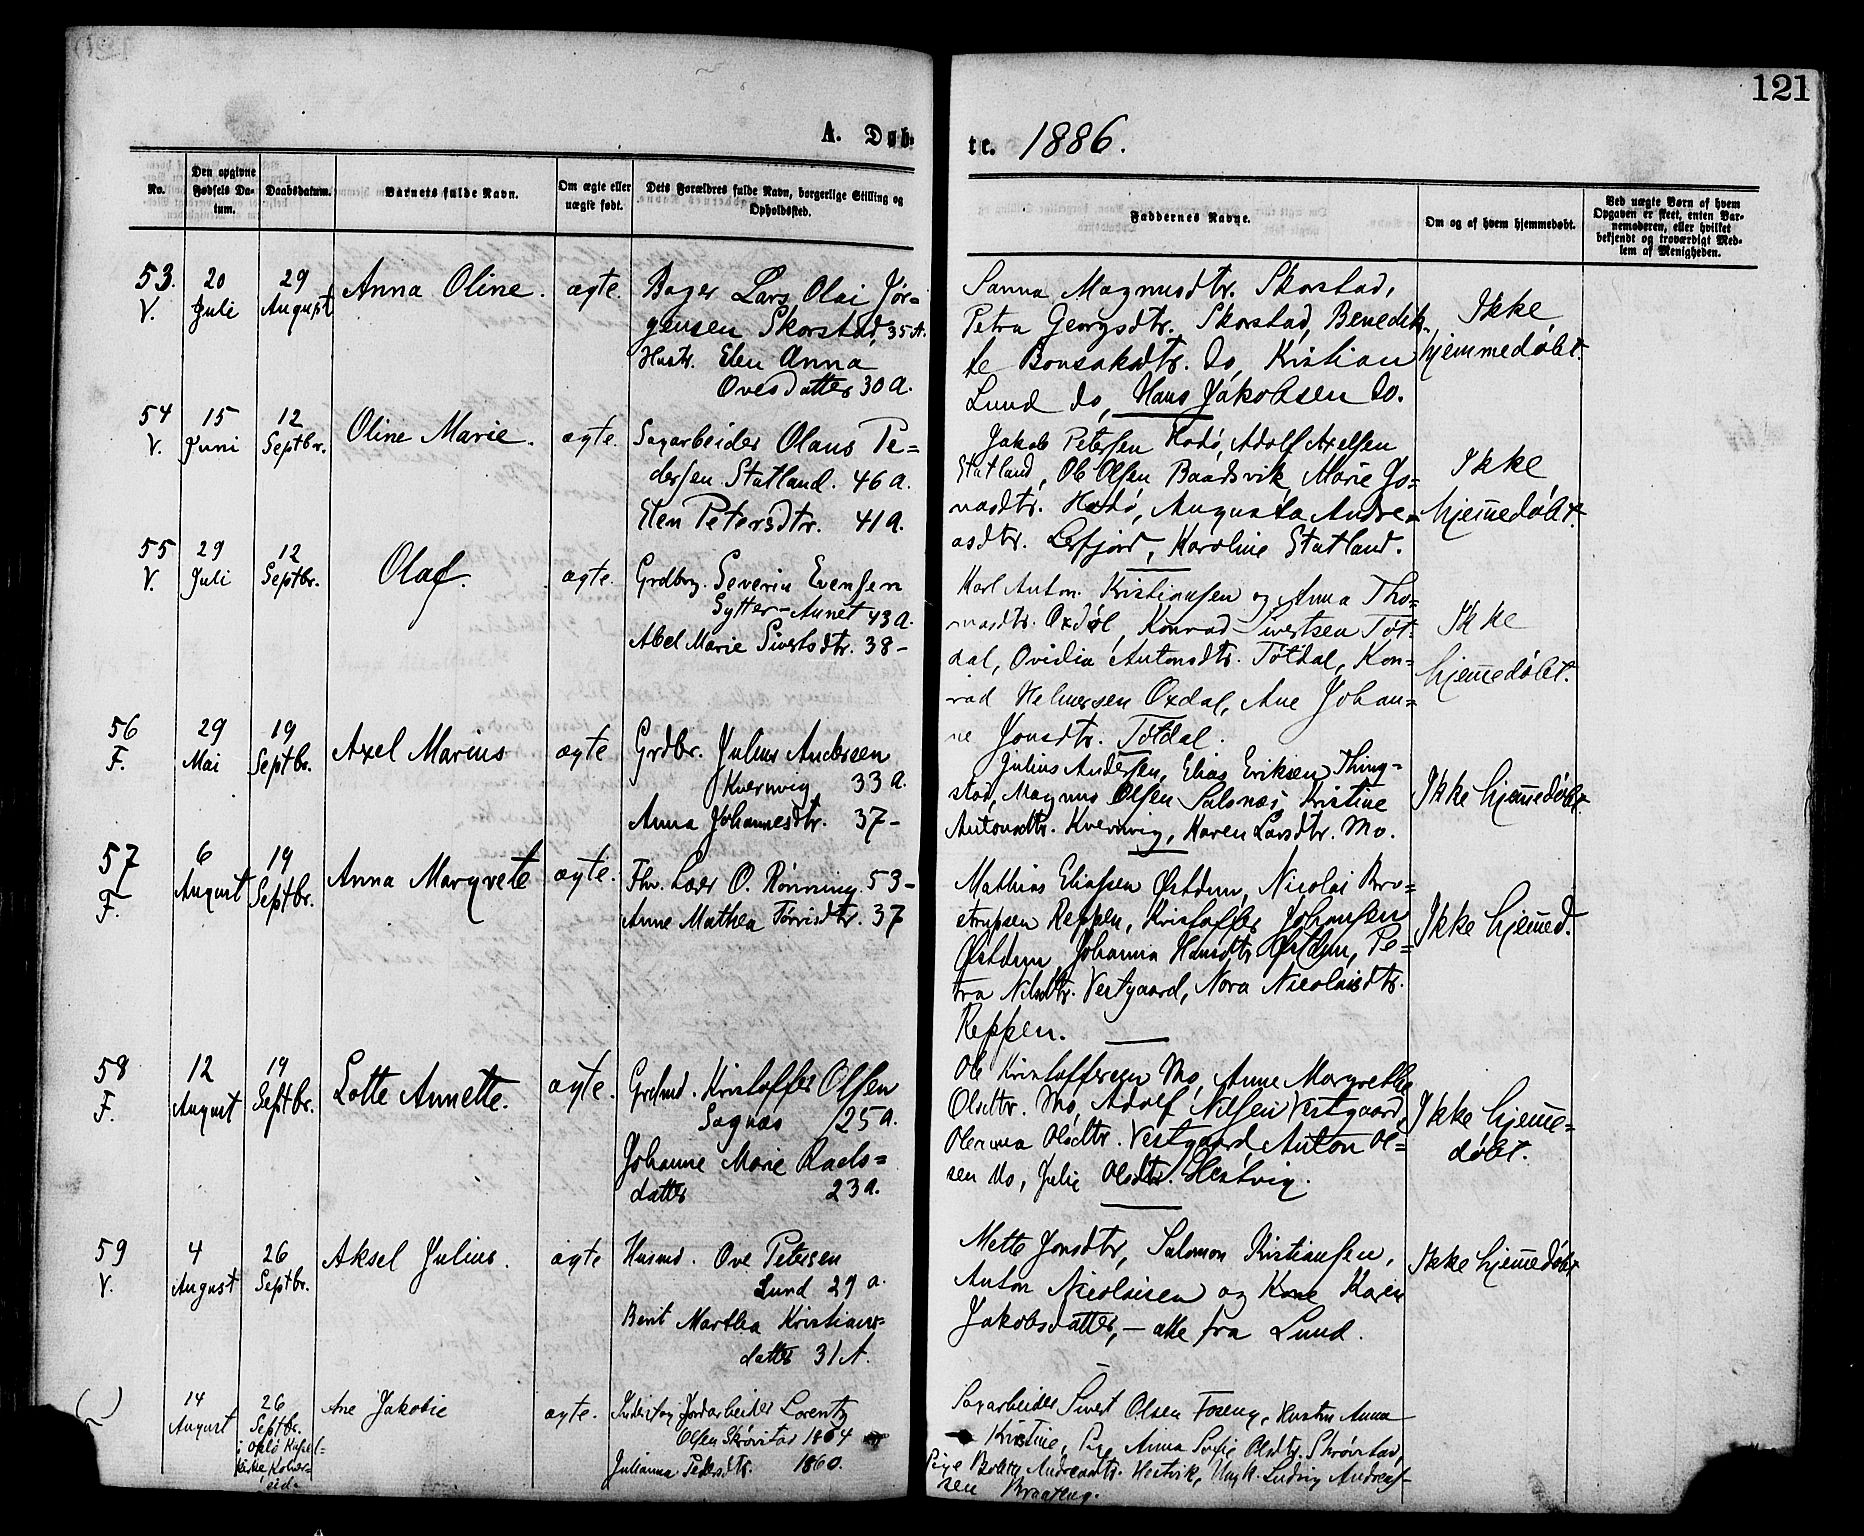 121
A. Døb-
te. 1886.
No.
Den opgivne Fødsels Da-
tum.
Daabsdatum.
Barnets fulde Navn.
Om ægte eller
uægte født.
Dets Forældres fulde Navn, borgerlige Stilling og
Opholdssted.
Faddernes Navne.
Om og af hvem hjemmedøbt.
Ved uægte Børn af hvem
Opgaven er skeet, enten Bar-
nemoderen, eller hvilket
bekjendt og troværdigt Med-
lem af Menigheden.
53.
V.
20
Juli
29
August
Anna Oline.
ægte.
Lars Olai Jør-
gensen Skorstad, 35 A.
Hustr. Elen Anna
Ovesdatter 30 A.
Sanna Magnusdtr. Skorstad,
Petra Georgsdtr. Skorstad, Benedik-
te Bonsaksdtr. do, Kristian
Lund do, Hans Jakobsen do.
Ikke
hjemmedøbt.
54
V.
15
Juni
12
Septbr.
Oline Marie.
ægte.
Sagarbeider Olaus Pe=
dersen Statland. 46 A.
Elen Petersdtr. 41 A.
Jakob Petersen Hodø, Adolf Axelsen
Statland, Ole Olsen Baadsvik, Marie Jo=
nasdtr. Hodø, Augusta Andre=
asdtr. Karoline Statland.
Ikke
hjem̅edøbt.
55
V.
29
Juli
12
Septbr.
Olaf.
ægte.
Grdbrg. Severin Evensen
43 A.
Abel Marie Sivertsdtr. 38 -
Karl Anton Kristiansen og Anna Tho=
masdtr. Oxdøl, Konrad Sivertsen Tøt-
dal, Ovidia Antonsdtr. Tøtdal, Kon=
rad Helmersen Oxdal, Ane Johan=
ne Jonsdtr. Tøtdal.
Ikke
hjem̅edøbt.
56
F.
29
Mai
19
Septbr.
Axel Marius
ægte
Grdbr. Julius Andersen
Kvernvig 33 A.
Anna Johannesdtr. 37 -
Julius Andersen, Elias Eriksen Thing=
stad, Magnus Olsen Salsnæs, Kristine
Antonsdtr. Kvernvig, Karen Larsdtr. Mo.
Ikke hjem̅edøbt.
57
F.
6
August
19
Septbr.
Anna Margrete
ægte.
O. Rønning 53 -
Anne Mathea Tørrisdtr. 37
Mathias Eliasen Østdun, Nicolai Bro=
strupsen Reppen, Kristoffer Johansen
Østdun, Johanna Hansdtr. Østdun, Pe=
tra Nilsdtr. Vestgaard, Nora Nicolaisdtr.
Reppen.
Ikke hjem̅ed.
58
F.
12
August
19
Septbr.
Lotte Annette.
ægte.
Kristoffer Olsen
Sagnæs 25 A.
Johanne Marie Raels=
datter 23 A.
Ole Kristoffersen Mo, Anne Margrethe
Olsdtr. Mo, Adolf Nilsen Vestgaard,
Olsdtr. Vestgaard, Anton Ol=
sen Mo, Julie Olsdtr. Hestvig.
Ikke hjem̅e=
døbt.
59
V.
4
August
26
Septbr.
Aksel Julius.
ægte
Husmd. Ove Petersen
Lund 29 A.
Berit Martha Kristians=
datter 31 A.
Mette Jonsdtr, Salomon Kristiansen,
Anton Nicolaisen og Kone Karen
Jakobsdatter, — alle fra Lund.
Ikke hjem̅edøbt
14
August
26
Septbr.
i
Kolver-
eid.
Ane Jakobie
ægte.
Inderst og Jordarbeider Lorentz
Olsen Skrøvstad 1864
Julianna Pedersdtr. 1860.
Sagarbeider Sivert Olsen Foseng, Hustru Anna
Kristine, Pige Anna Sofie Olsdtr. Skrøvstad,
Pige Andreasdtr. Hestvik, Ungk. Ludvig Andreas-
sen Braateng.